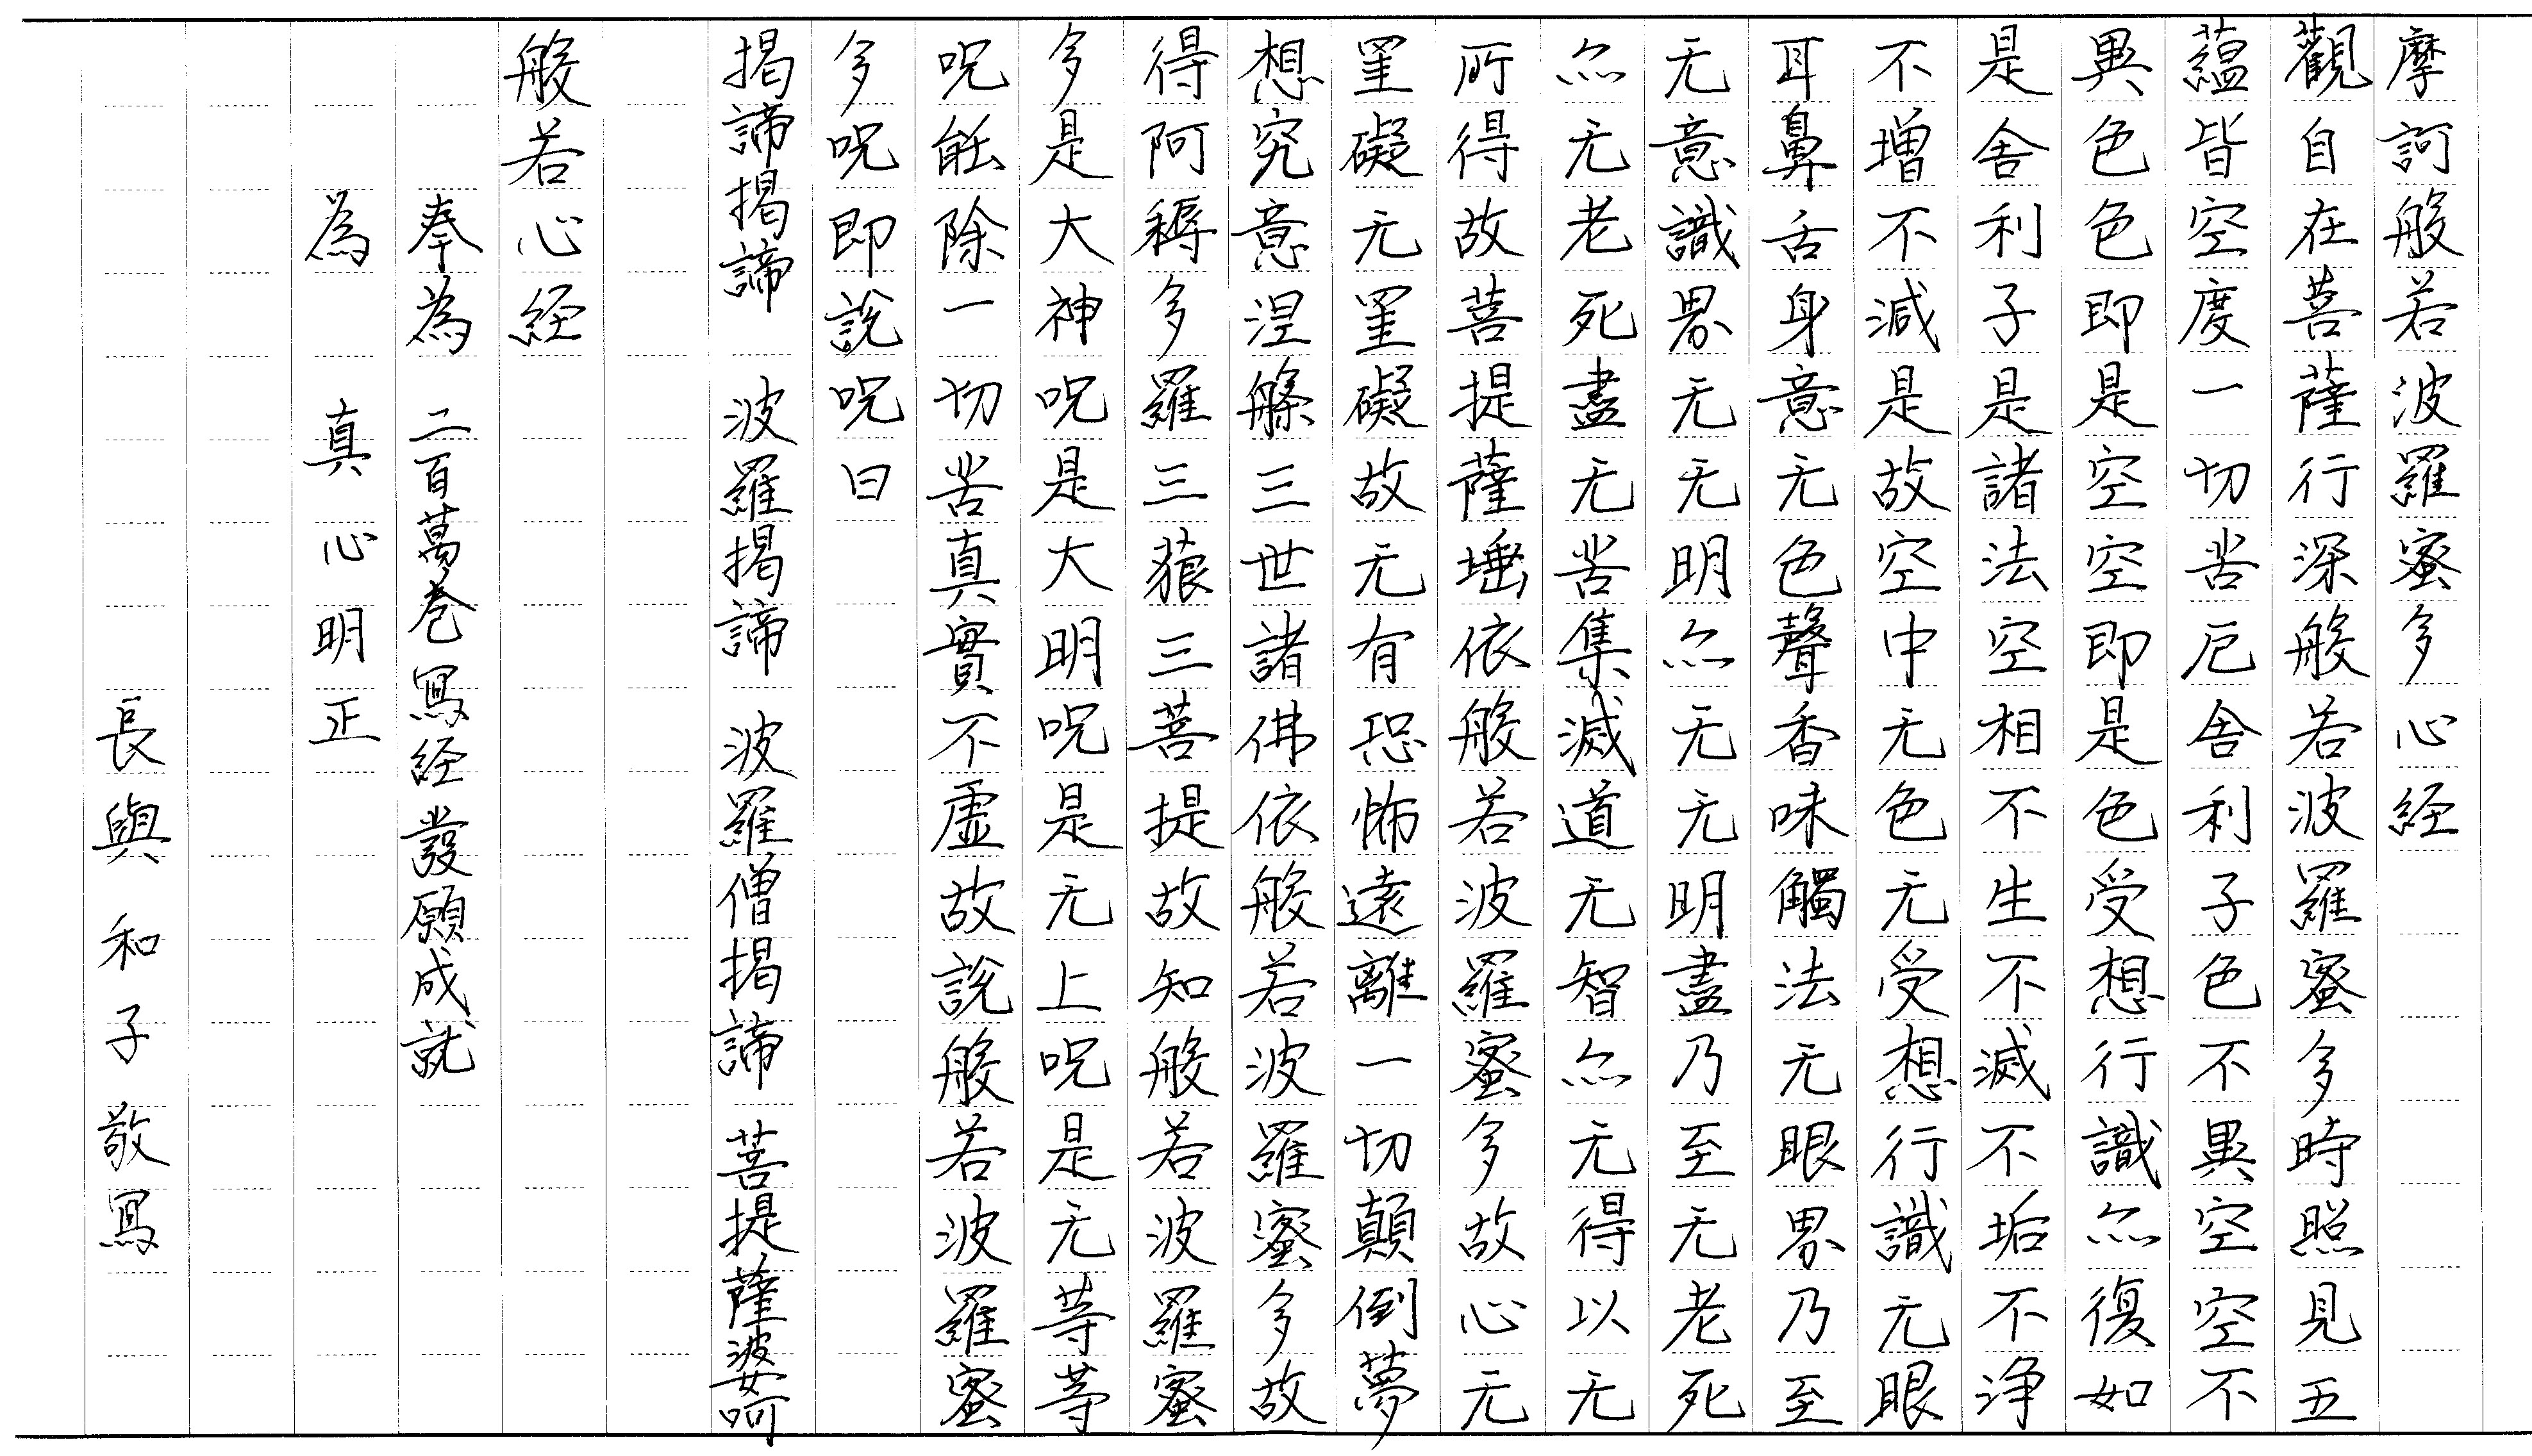 摩訶般若波羅蜜多心経
觀自在菩薩行深般若波羅蜜多時照見五
蘊皆空度一切苦厄舎利子色不異空空不
異色色即是空空即是色受想行識亦復如
是舎利子是諸法空相不生不滅不垢不浄
不増不減是故空中无色无受想行識无眼
耳鼻舌身意无色聲香味觸法无眼界乃至
无意識界无无明亦无无明盡乃至无老死
亦无老死盡无苦集滅道无智亦无得以无
所得故菩提薩埵依般若波羅蜜多故心无
罣礙无罣礙故无有恐怖遠離一切顛倒夢
想究意涅槃三世諸佛依般若波羅蜜多故
得阿耨多羅三藐三菩提故知般若波羅蜜
多是大神呪是大明呪是无上呪是无等等
呪能除一切苦真實不虛故說般若波羅蜜
多呪即說呪曰
揭諦揭諦 波羅揭諦 波羅僧揭諦 菩提薩婆訶
般若心経
奉為 二百萬巻寫経發願成就
為 真心明正
長與和子敬寫